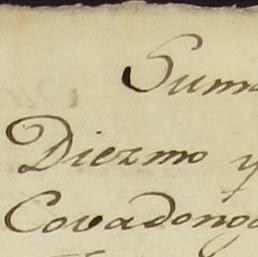 Sum
Diezmo y
Covadong